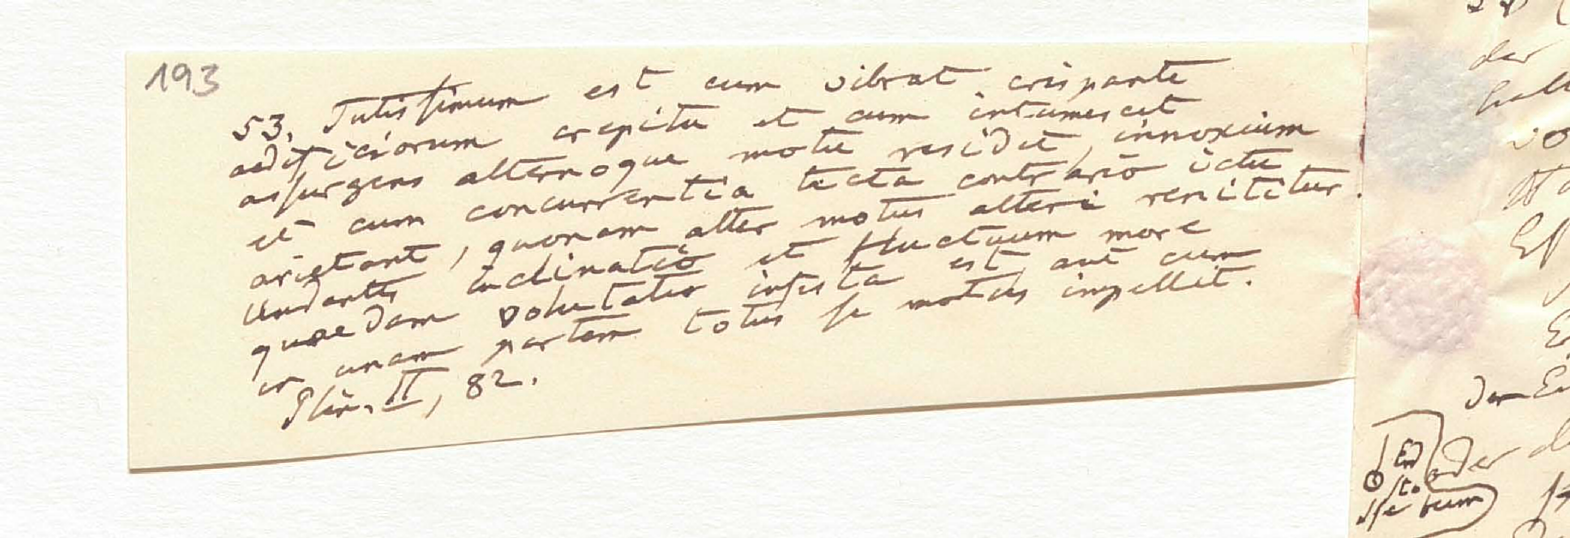 193
53. Tutissimum est cum vibrat crispante
aedificiorum crepitu et cum intumescit
assurgens alternoque motu residet, innoxium
et cum concurrentia tecta contrario ictu
arietant, quonam alter motus alteri renititur.
Undantis inclinatio et fluctuum more
quaedam volutatio infesta est, aut cum
in unam partem totus se motus impellit.
Plin. II, 82.
der
vo
Ef
Der Ei
oder